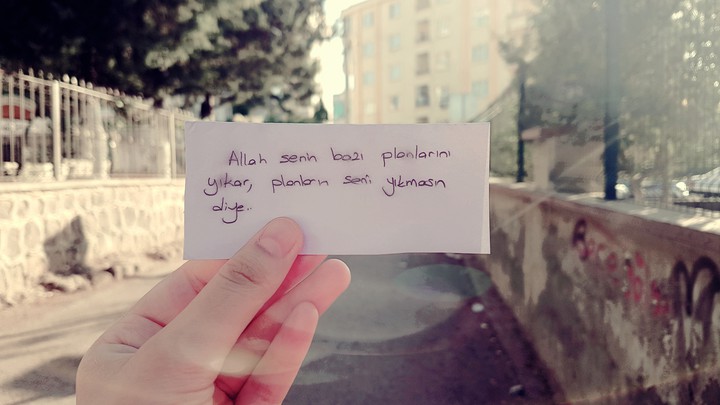 Allah senin bazı planlarını
yıkar, planların seni yıkmasın
diye..